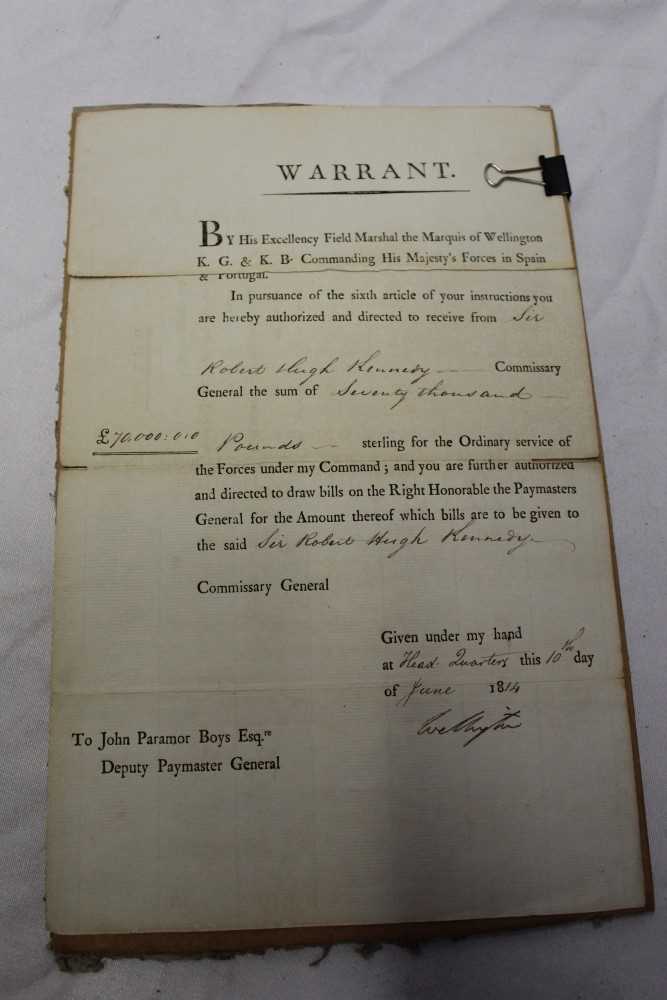 WARRANT.
BY His Excellency Field Marshal the Marquis of Wellington
K. G. & K. B. Commanding His Majesty's Forces in Spain
& Portugal.
In pursuance of the sixth article of your instructions you
are hereby authorized and directed to receive from Sir
Robert Hugh Kennedy Commissary
General the sum of Seventy thousand
£70,000:0,0 Pounds sterling for the Ordinary service of
the Forces under my Command; and you are further authorized
and directed to draw bills on the Right Honorable the Paymasters
General for the Amount thereof which bills are to be given to
the said Sir Robert Hugh Kennedy
Commissary General
Given under my hand
at Head Quarters this 10th day
of June 1814
Wellington
To John Paramor Boys Esq.re
Deputy Paymaster General